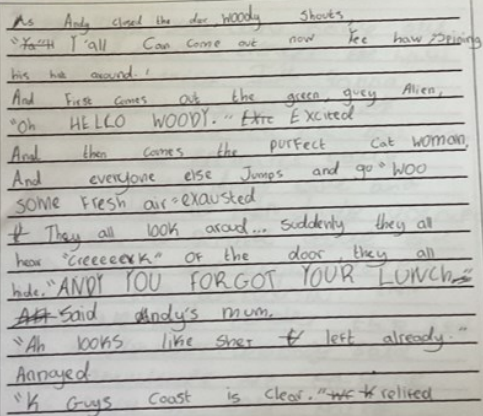 As Andy closed the dor Woody Shouts,
"Ya'll Y'all Can Come out now Yee haw spining
his hat around.
And First comes out the green, guey Alien,
"Oh HELLO WOODY." Exte Excited
And then comes the purfect Cat woman,
And everyone else Jumps and go "Woo
some Fresh air" exausted
They all look aroud... suddenly they all
hear "Creeeeerk" Of the door, they all
hide. "ANDY YOU FORGOT YOUR LUNCH"
Said Andy's mum.
"Ah looks like sher left already."
Annoyed
"K Guys Coast is clear." relifed